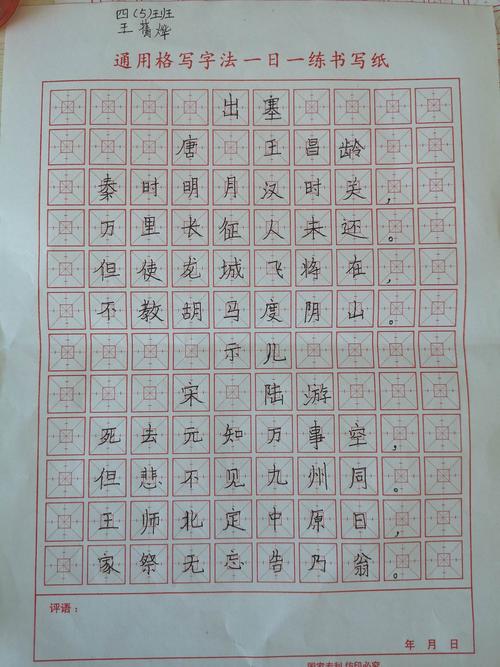 四(5)班
王 烨
通用格写字法一日一练书写纸
出塞
唐 王昌龄
秦时明月汉时关，
万里长征人未还。
但使龙城飞将在，
不教胡马度阴山。
示儿
宋 陆游
死去元知万事空，
但悲不见九州同。
王师北定中原日，
家祭无忘告乃翁。
评语：
年 月 日